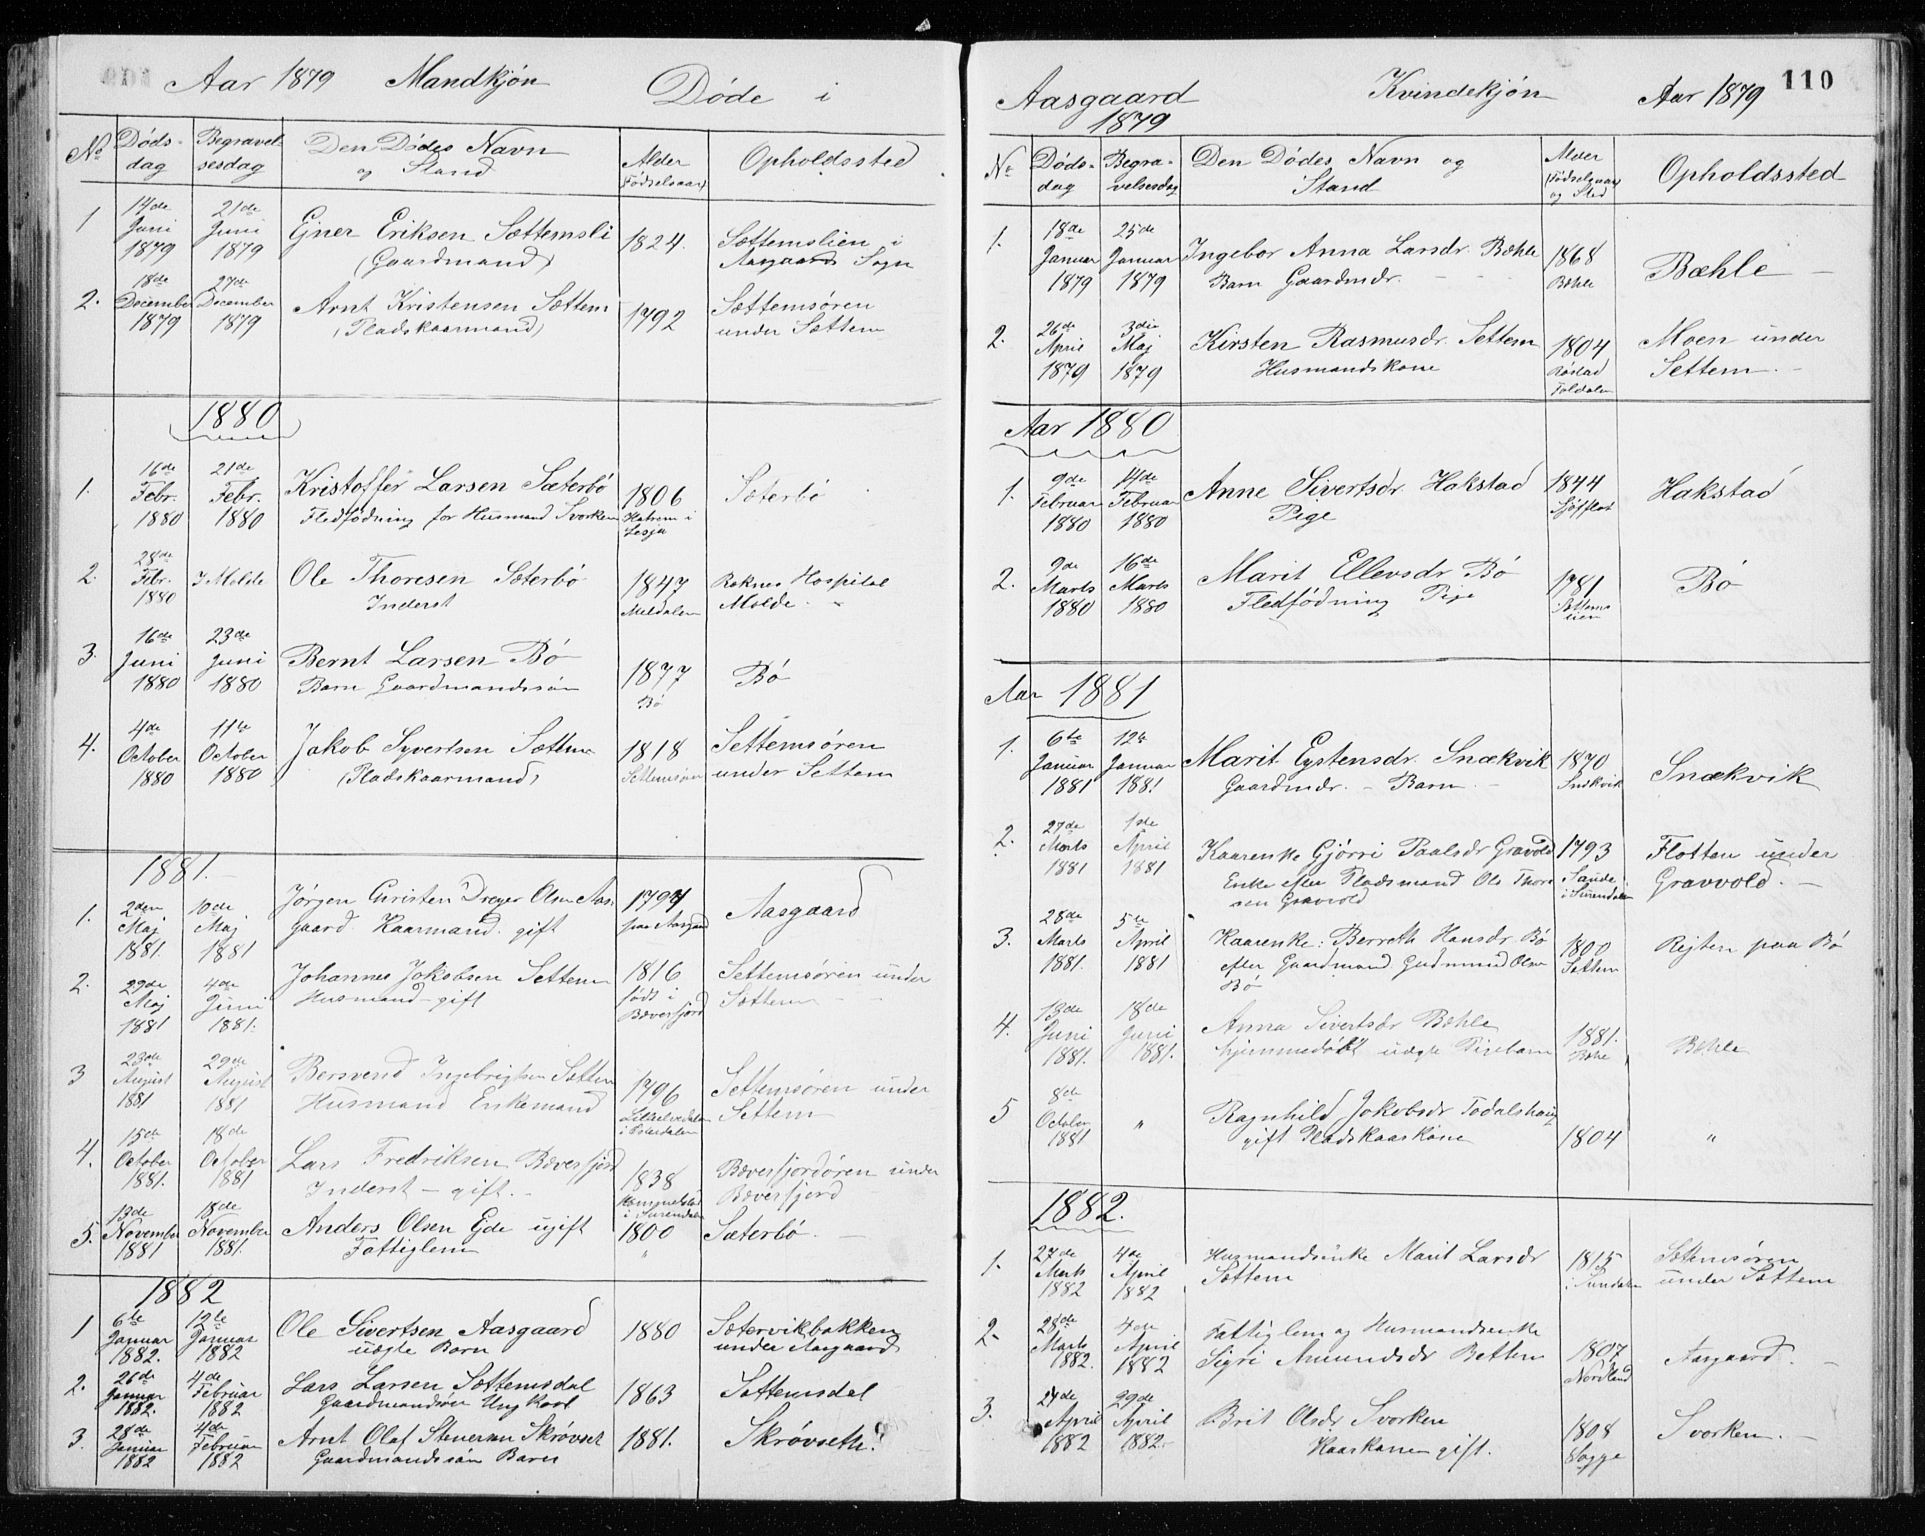 Aar 1879 Mandkjøn Døde i
No Døds-dag Begravelsesdag Den Dødes Navn og Stand Alder (Fødselsaar) Opholdssted
1 14de Juni 1879 21de Juni 1879 Ejner Eriksen Sættemsli (Gaardmand) 1824. Sættemslien i Aasgaards Sogn
2. 18de December 1879 27de December 1879 Arnt Kristensen Sættem (Pladskaarmand) 1792 Sættemsøren under Sættem
1880
1. 16de Febr. 1880 21de Febr. 1880 Kristoffer Larsen Sæterbö Fledfødning for Husmand Svorken 1806 Hatrem i Lesja Sæterbö
2. 28de Febr. 1880 I Molde Ole Thoresen Sæterbö Inderst 1847 Meldalen Reknes Hospital Molde. "
3. 16de Juni 1880 23de Juni 1880 Bernt Larsen Bö Barn Gaardmandssön 1877 Bö Bö
4. 4de October 1880 11te October 1880 Jakob Syvertsen Sættem (Pladskaarmand) 1818 Settemsören Settemsören under Settem
1881.
1. 2den Maj 1881. 10de Maj 1881 Jørgen Christen Dreyer Olsen Aasgaard Kaarmand. gift 1794 paa Aasgaard Aasgaard
2. 29de Maj 1881 4de Juni 1881. Johannes Jakobsen Settem Husmand - gift 1816 født i Bæverfjord Settemsören under Sættem
3 23de August 1881 29de August 1881 Bersvend Ingebrigtsen Sættem Husmand Enkemand 1796 Lilleelvedalen i Østerdalen Settemsören under Settem
4. 15de October 1881. 18de October 1881 Lars Fredriksen Bæverfjord Inderst - gift. 1838 i Surendalen Bæverfjordören under Bæverfjord
5. 13de November 1881 18de November 1881. Anders Olsen Ejde ugift Fattiglem 1800 " Sæterbö.
1882
1 6te Januar 1882. 12te Januar 1882 Ole Sivertsen Aasgaard uægte Barn 1880 Sætervikbakken under Aasgaard
2. 26de Januar 1882. 4de Februar 1882 Lars Larsen Sættemsdal Gaardmandsön Ung Karl 1863 Sættemsdal
3. 28de Januar 1882 4de Februar 1882 Arnt Olaf Stenersen Skrövset Gaardmandssön Barn 1881. Skrövseth.
Aasgaard 1879 Kvindekjön Aar 1879 110
No Døds-dag Begravelsesdag Den Dødes Navn og Stand Alder (Fødselsaar) og Sted Opholdssted
1. 18de Januar 1879 25de Januar 1879 Ingebor Anna Larsdr. Bæhle Barn Gaardmdr. 1868 Bæhle Bæhle
2. 26de April 1879 3die Maj 1879 Kirsten Rasmusdr. Settem Husmandskone 1804 Foldalen Moen under Settem.
Aar 1880
1. 9de Februar 1880 14de Februar 1880 Anne Sivertsdr. Hakstad Pige 1844 Sjøflot Hakstad
2. 9de Marts 1880 16de Marts 1880 Marit Ellevsdr Bö Fledfødning Pige 1781 Settemslien Bö
Aar 1881
1. 6te Januar 1881 12te Januar 1881 Marit Eystensdr. Snækvik Gaardmdr. - Barn 1870 Snækvik Snækvik
2. 27de Marts 1881 1ste April 1881 Kaarenke Gjørri Paalsdr Gravvold Enke efter Pladsmand Ole Thoresen Gravvold 1793 Sande i Surendalen Flotten under Gravvold.
3. 28de Marts 1881. 5te April 1881 Kaarenke: Berreth Hansdr. Bö efter Gaardmand Gudmund Olsen Bö 1800 Settem Rejten paa Bö
4. 13de Juni 1881. 18de Juni 1881. Anna Sivertsdr Bæhle hjemmedøbt uægte Pigebarn 1881. Bæhle Bæhle
5 8de October 1881 " Ragnhild Jakobsdr Todalshaug gift Pladskaarkone 1804 "
1882.
1. 27de Marts 1882 4de April 1882 Husmandsenke Marit Larsdr Sættem 1815 i Sundalen Sættemsören under Sættem
2. 28de Marts 1882. 4de April 1882 Fattiglem og Husmandsenke Sigri Amundsdr Betten 1807 Nordland Aasgaard.
3. 24de April 1882 29de April 1882. Brit Olsdr Svorken Kaarkone gift. 1808 Bogge Svorken.